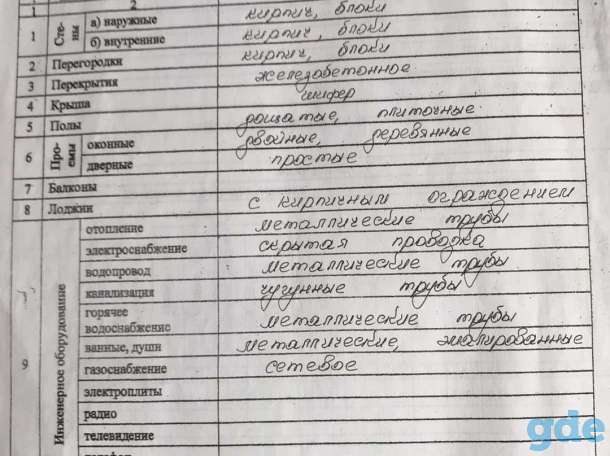 1 2
1 Стены а) наружные кирпич, блоки
б) внутренние кирпич, блоки
2 Перегородки кирпич, блоки
3 Перекрытия железобетонное
4 Крыша шифер
5 Полы дощатые, плиточные
6 Проемы оконные двойные, деревянные
дверные простые
7 Балконы
8 Лоджии с кирпичным ограждением
9 Инженерное оборудование
отопление металлические трубы
электроснабжение скрытая проводка
водопровод металлические трубы
канализация чугунные трубы
горячее
водоснабжение металлические трубы
ванные, души металлические, эмалированные
газоснабжение сетевое
электроплиты
радио
телевидение
телефон
gde